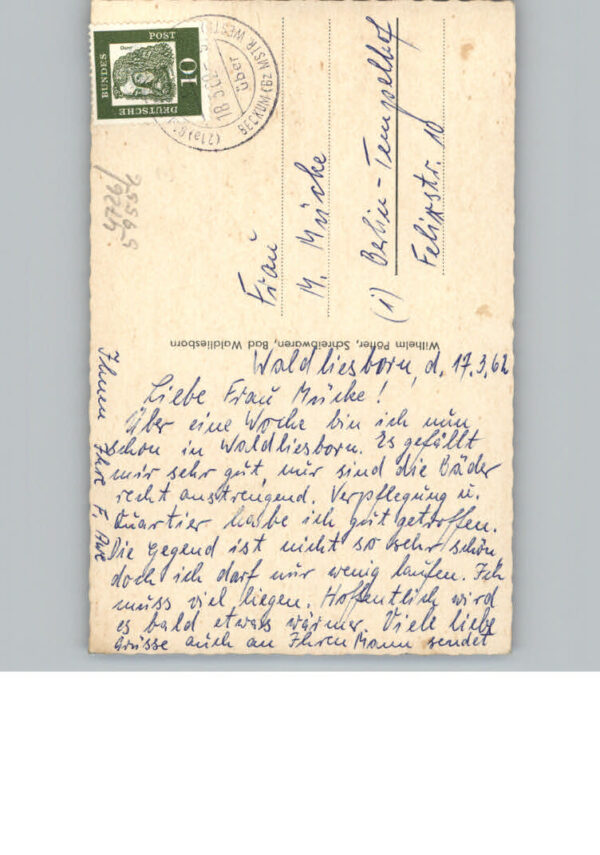 Waldliesborn, d. 17.3.62
Liebe Frau Mücke!
Über eine Woche bin ich nun
schon in Waldliesborn. Es gefällt
mir sehr gut, nur sind die Bäder
recht anstrengend. Verpflegung u.
Quartier habe ich gut getroffen.
Die Gegend ist nicht so sehr schön
doch ich darf nur wenig laufen. Ich
muss viel liegen. Hoffentlich wird
es bald etwas wärmer. Viele liebe
Grüsse auch an Ihren Mann sendet
Ihnen Ihre F.
Frau
M. Mücke
(1) Berlin-Tempelhof
Felixstr. 10
Wilhelm Pötter, Schreibwaren, Bad Waldliesborn
DEUTSCHE
BUNDES
POST
10
Dürer
über
BECKUM (BZ MSTR WESTF)
(21a)